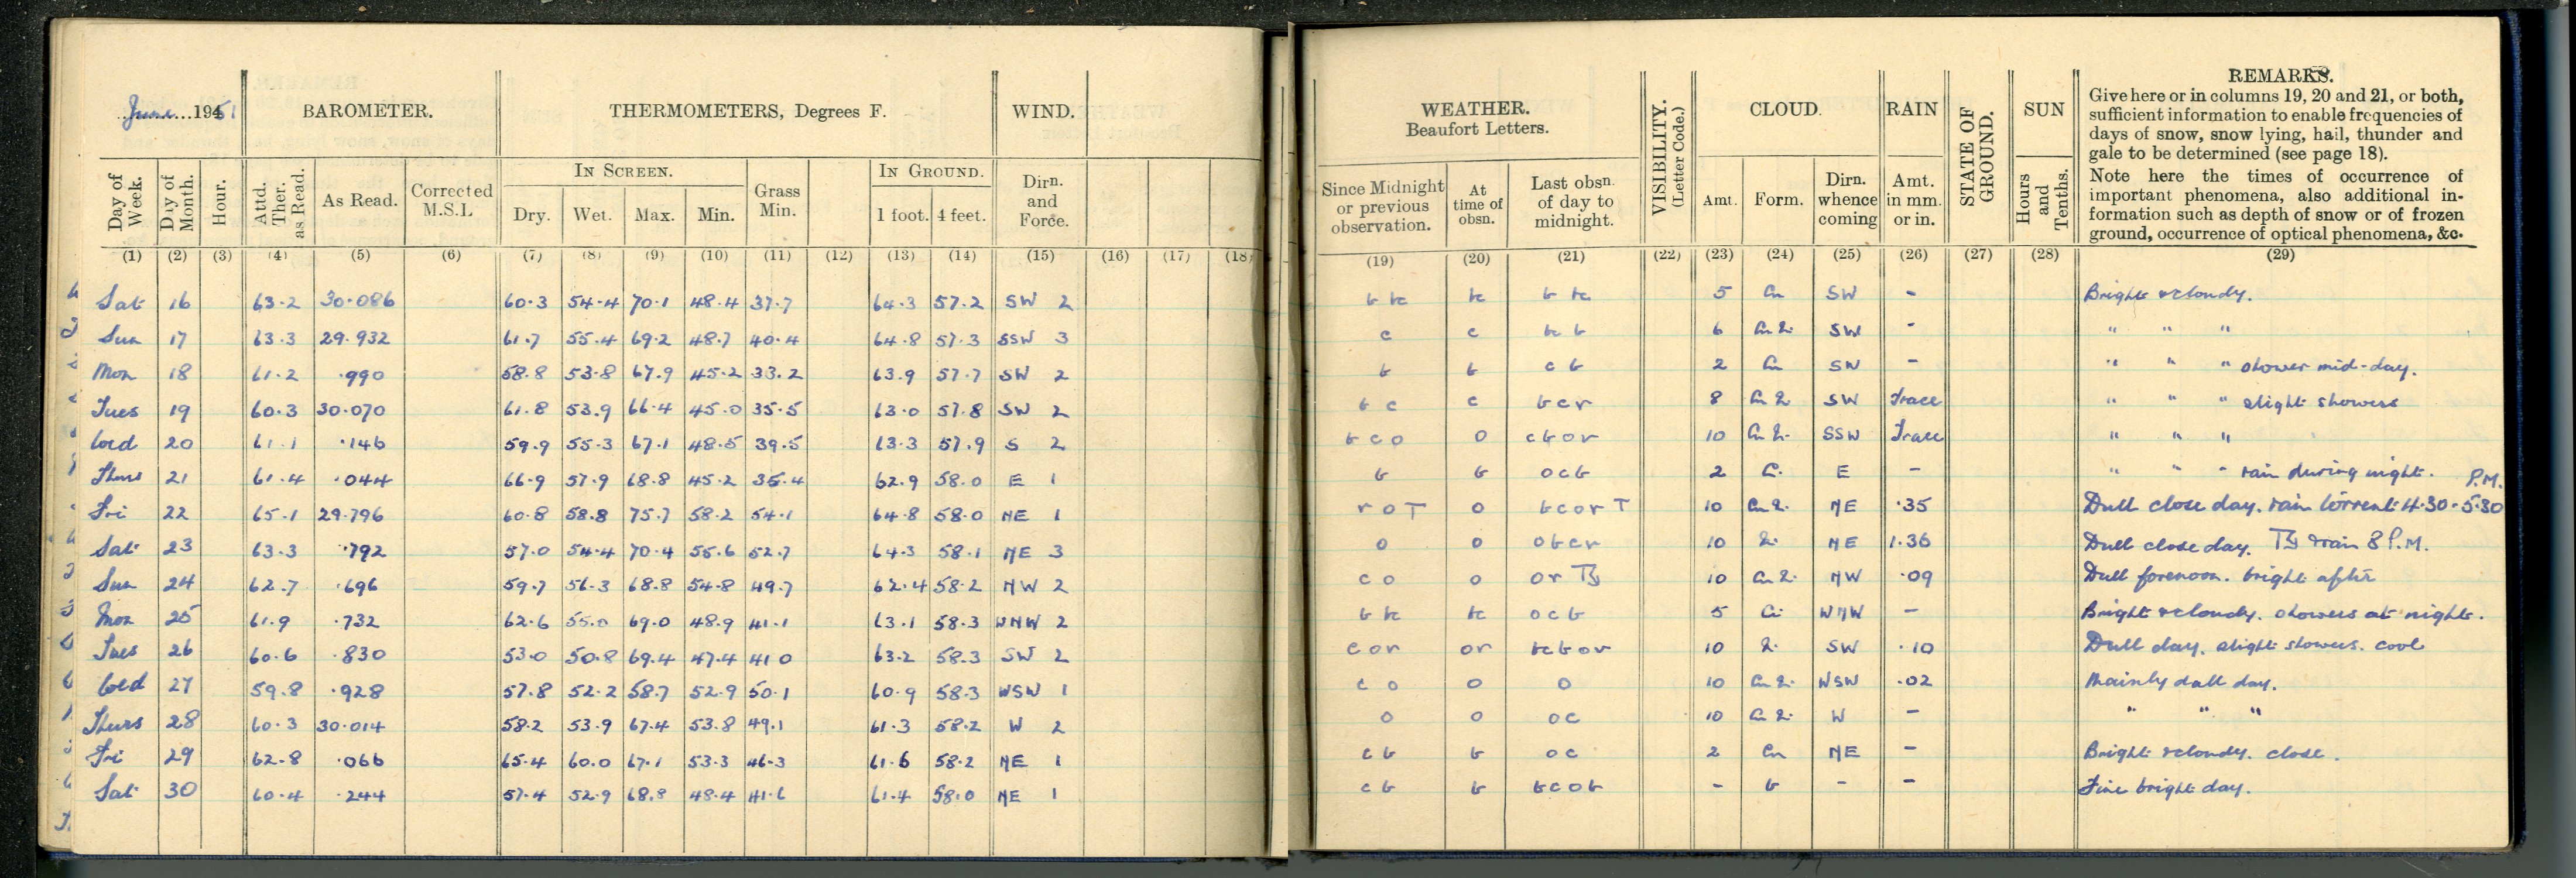 June 1951 BAROMETER. THERMOMETERS, Degrees F. WIND.
Day of Week. Day of Month. Hour. Attd. Ther. as Read. As Read. Corrected M.S.L IN SCREEN. Dry. Wet. Max. Min. Grass Min. IN GROUND. 1 foot. 4 feet. Dirn. and Force.
(1) (2) (3) (4) (5) (6) (7) (8) (9) (10) (11) (12) (13) (14) (15) (16) (17) (18)
Sat 16 63.2 30.086 60.3 54.4 70.1 48.4 37.7 64.3 57.2 SW 2
Sun 17 63.3 29.932 61.7 55.4 69.2 48.7 40.4 64.8 57.3 SSW 3
Mon 18 61.2 .990 58.8 53.8 67.9 45.2 33.2 63.9 57.7 SW 2
Tues 19 60.3 30.070 61.8 53.9 66.4 45.0 35.5 63.0 57.8 SW 2
Wed 20 61.1 .146 59.9 55.3 67.1 48.5 39.5 63.3 57.9 S 2
Thurs 21 61.4 .044 66.9 57.9 68.8 45.2 35.4 62.9 58.0 E 1
Fri 22 65.1 29.796 60.8 58.8 75.7 58.2 54.1 64.8 58.0 NE 1
Sat 23 63.3 .792 57.0 54.4 70.4 55.6 52.7 64.3 58.1 NE 3
Sun 24 62.7 .696 59.7 56.3 68.8 54.8 49.7 62.4 58.2 NW 2
Mon 25 61.9 .732 62.6 55.0 69.0 48.9 41.1 63.1 58.3 WNW 2
Tues 26 60.6 .830 53.0 50.8 69.4 47.4 41 0 63.2 58.3 SW 2
Wed 27 59.8 .928 57.8 52.2 58.7 52.9 50.1 60.9 58.3 WSW 1
Thurs 28 60.3 30.014 58.2 53.9 67.4 53.8 49.1 61.3 58.2 W 2
Fri 29 62.8 .066 65.4 60.0 67.1 53.3 46.3 61.6 58.2 NE 1
Sat 30 60.4 .244 57.4 52.9 68.8 48.4 41.6 61.4 58.0 NE 1
WEATHER. Beaufort Letters. VISIBILITY. (Letter Code.) CLOUD. RAIN STATE OF GROUND. SUN REMARKS.
Give here or in columns 19, 20 and 21, or both,
sufficient information to enable frequencies of
days of snow, snow lying, hail, thunder and
gale to be determined (see page 18).
Note here the times of occurrence of
important phenomena, also additional in-
formation such as depth of snow or of frozen
ground, occurrence of optical phenomena, &c.
Since Midnight or previous observation. At time of obsn. Last obsn. of day to midnight. Amt. Form. Dirn. whence coming Amt. in mm. or in. Hours and Tenths.
(19) (20) (21) (22) (23) (24) (25) (26) (27) (28) (29)
b bc bc b bc 5 Cu SW - Bright & cloudy.
c c bc b 6 SW - " " "
b b c b 2 Cu SW - " " " shower mid-day.
b c c b c r 8 SW Trace " " " slight showers
b c o o c b o r 10 SSW Trace " " "
b b o c b 2 E - " " " rain during night.
r o T o b c o r T 10 NE .35 Dull close day. rain torrent 4.30-5.30 P.M.
o o o b c r 10 NE 1.36 Dull close day. & rain 8 P.M.
c o o o r 10 NW .09 Dull forenoon. bright after
b bc bc o c b 5 WNW - Bright & cloudy. showers at night.
c o r o r bc b o r 10 SW .10 Dull day. slight showers. cool
c o o o 10 WSW .02 Mainly dull day.
o o o c 10 W - " " "
c b b o c 2 Cu NE - Bright & cloudy. close.
c b b b c o b - b - - Fine bright day.